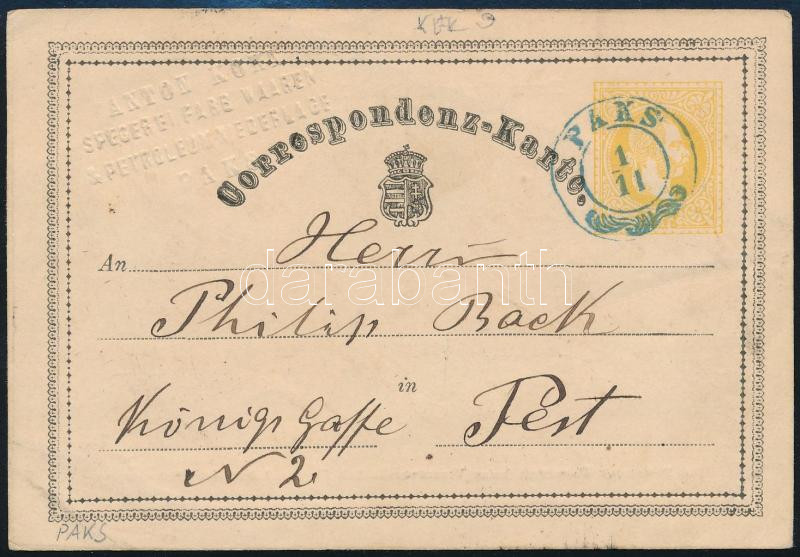 KÉK 9
ANTON KOHN
SPEGEREI FARB WAAREN
& PETROLEUM NIEDERLAGE
PAKS
Correspondenz-Karte.
PAKS
1
11
An Herrn
Philip Back
Königs Gasse in Pest
N 2
PAKS
darabanth